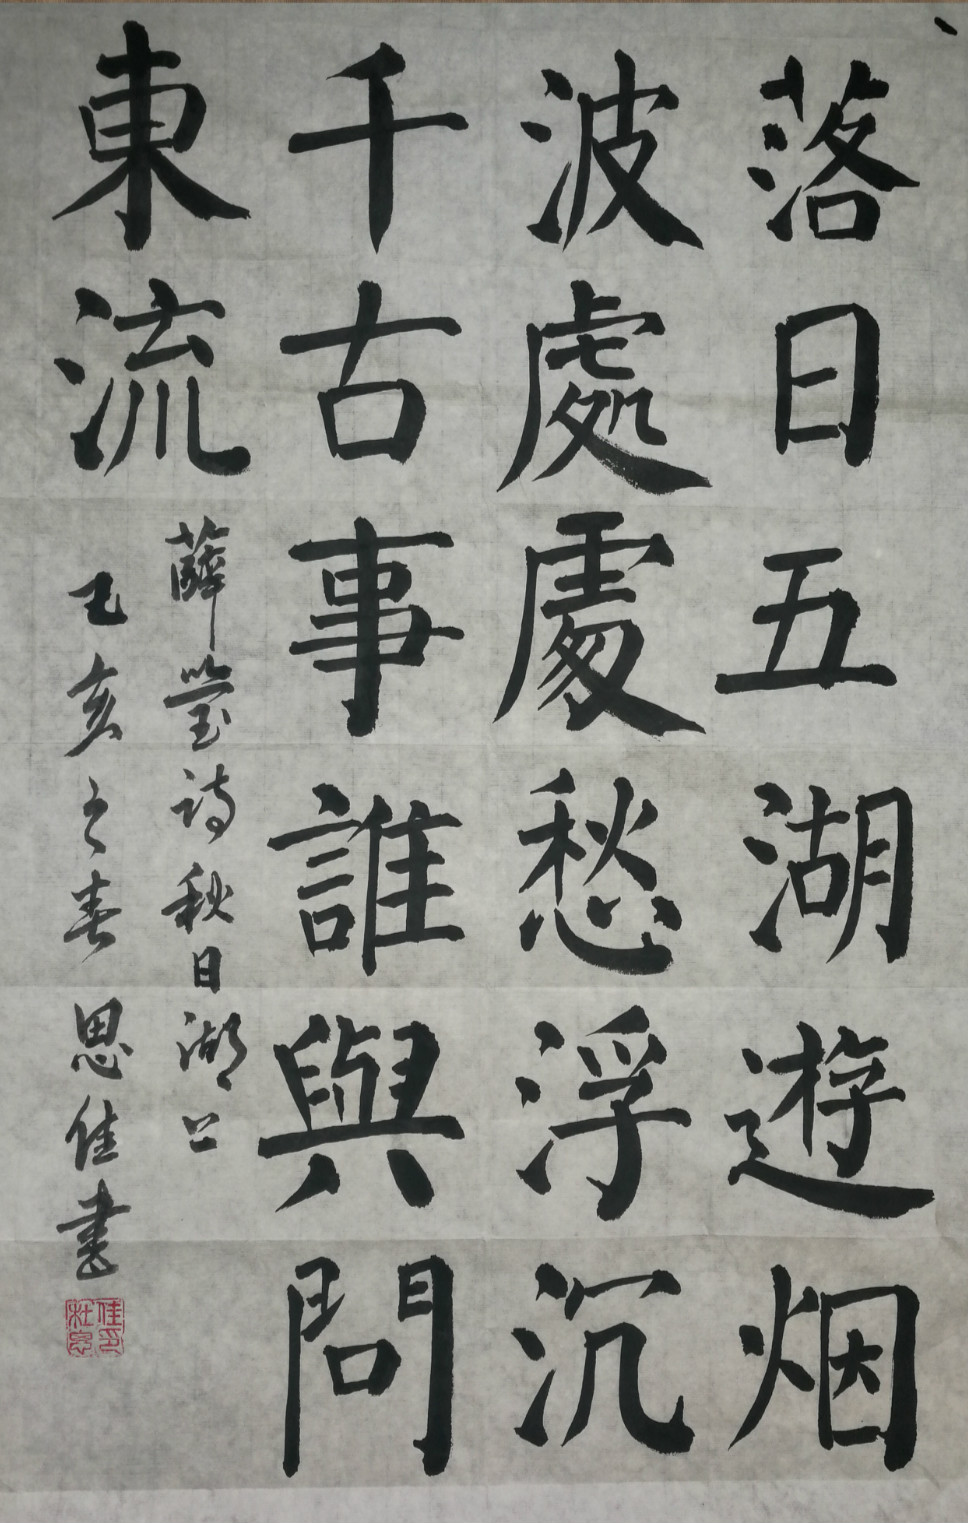 落日五湖遊烟
波處處愁浮沉
千古事誰與問
東流
薛瑩詩秋日湖上
己亥之春 思佳書